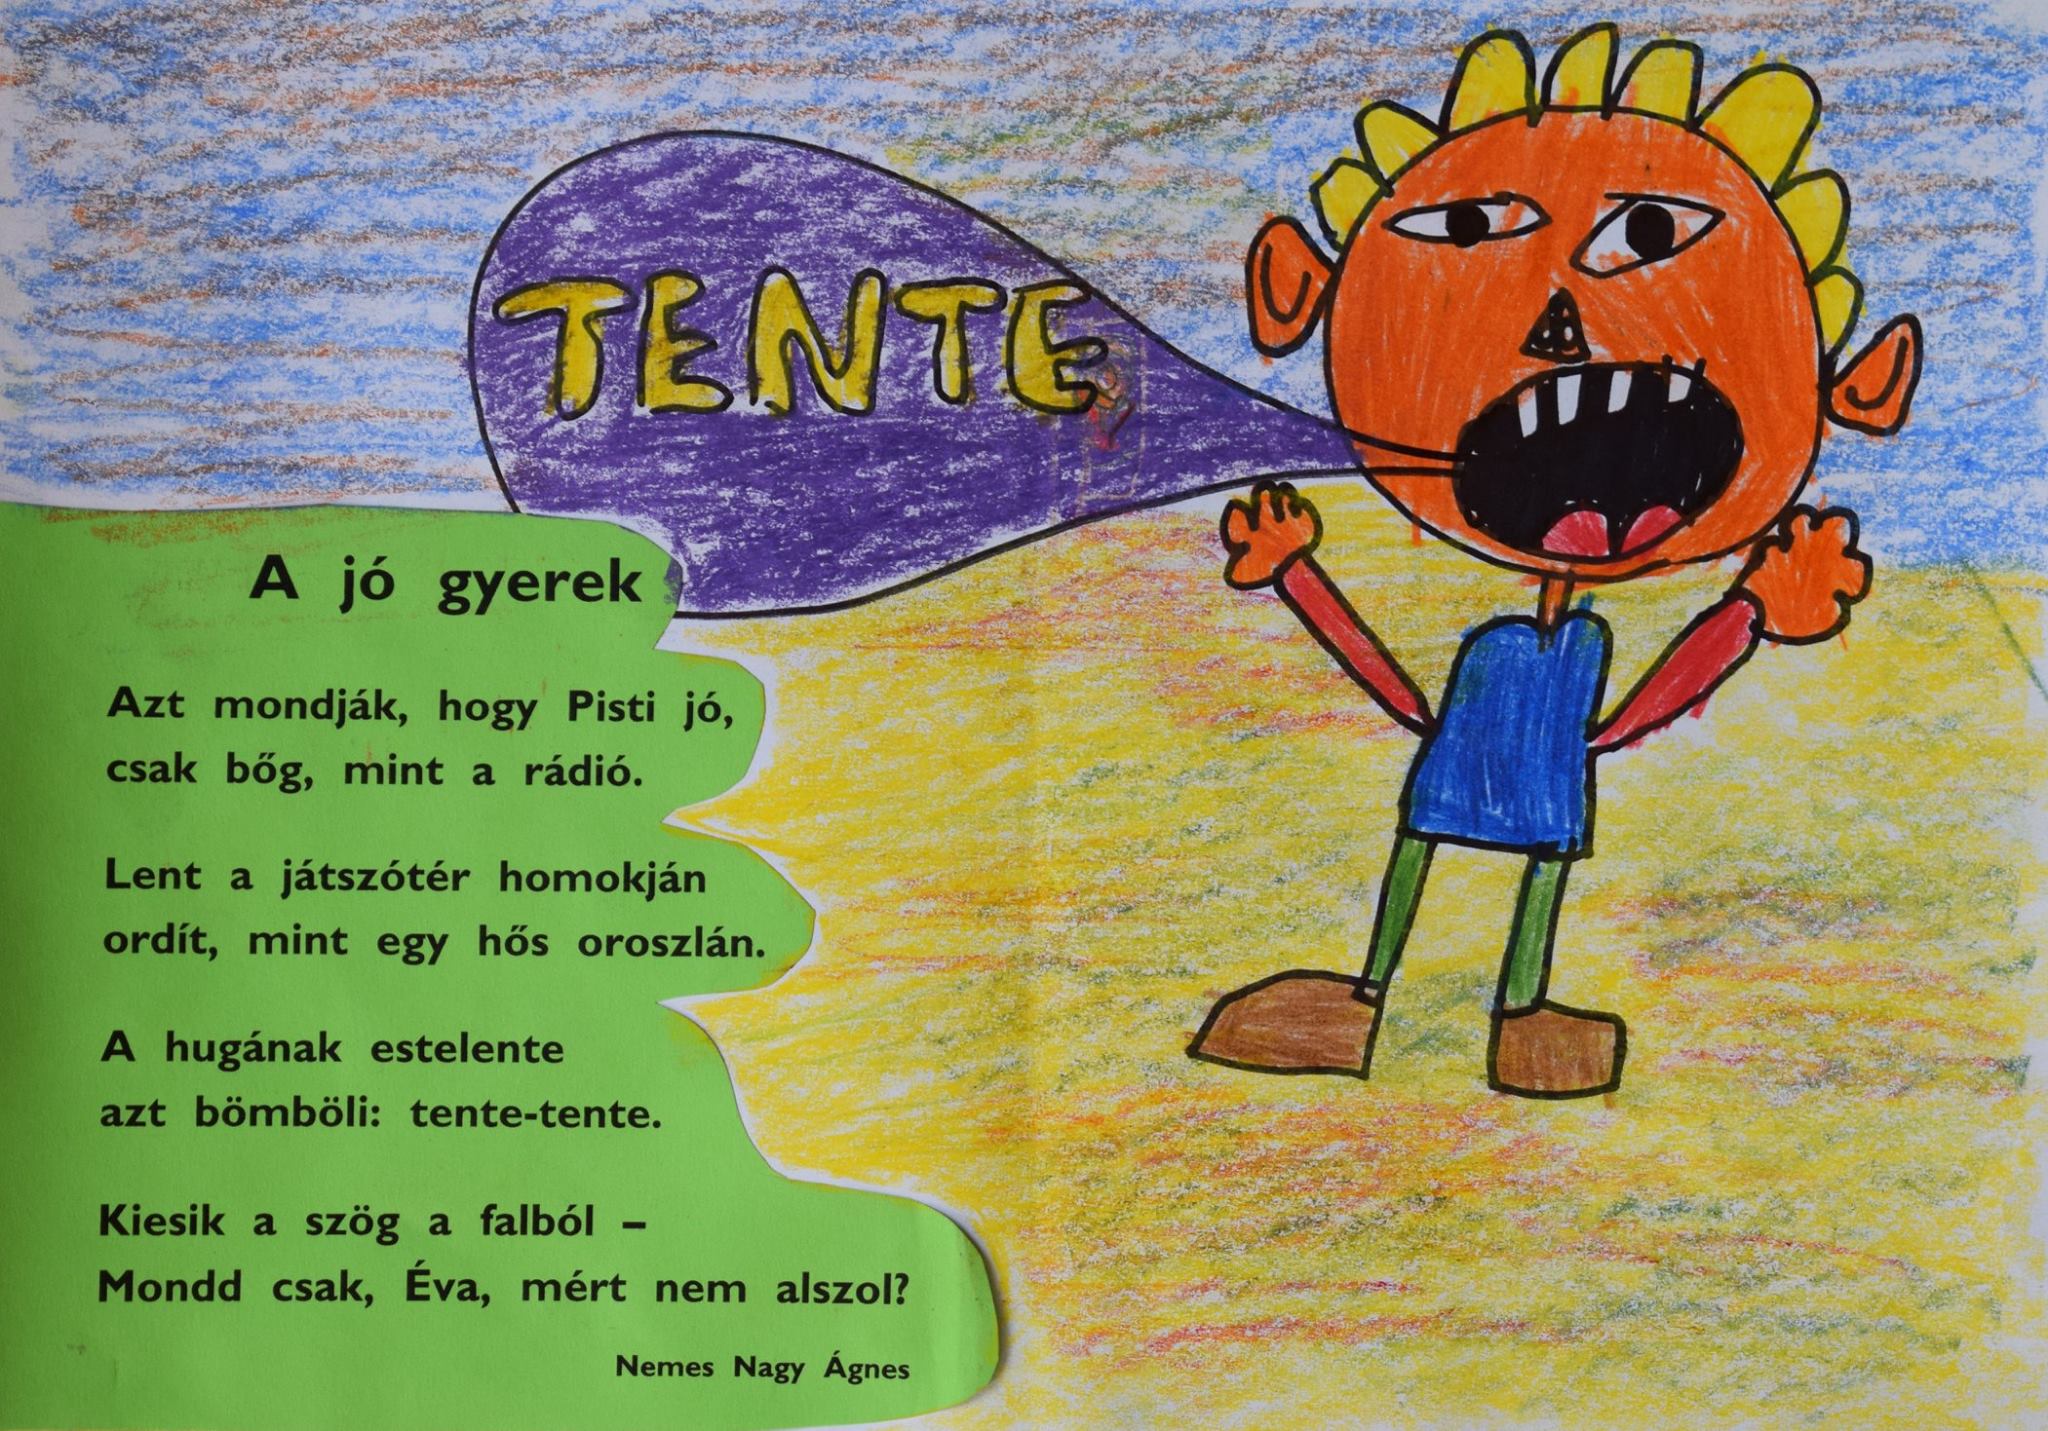 TENTE
A jó gyerek
Azt mondják, hogy Pisti jó,
csak bőg, mint a rádió.
Lent a játszótér homokján
ordít, mint egy hős oroszlán.
A hugának estelente
azt bömböli: tente-tente.
Kiesik a szög a falból –
Mondd csak, Éva, mért nem alszol?
Nemes Nagy Ágnes